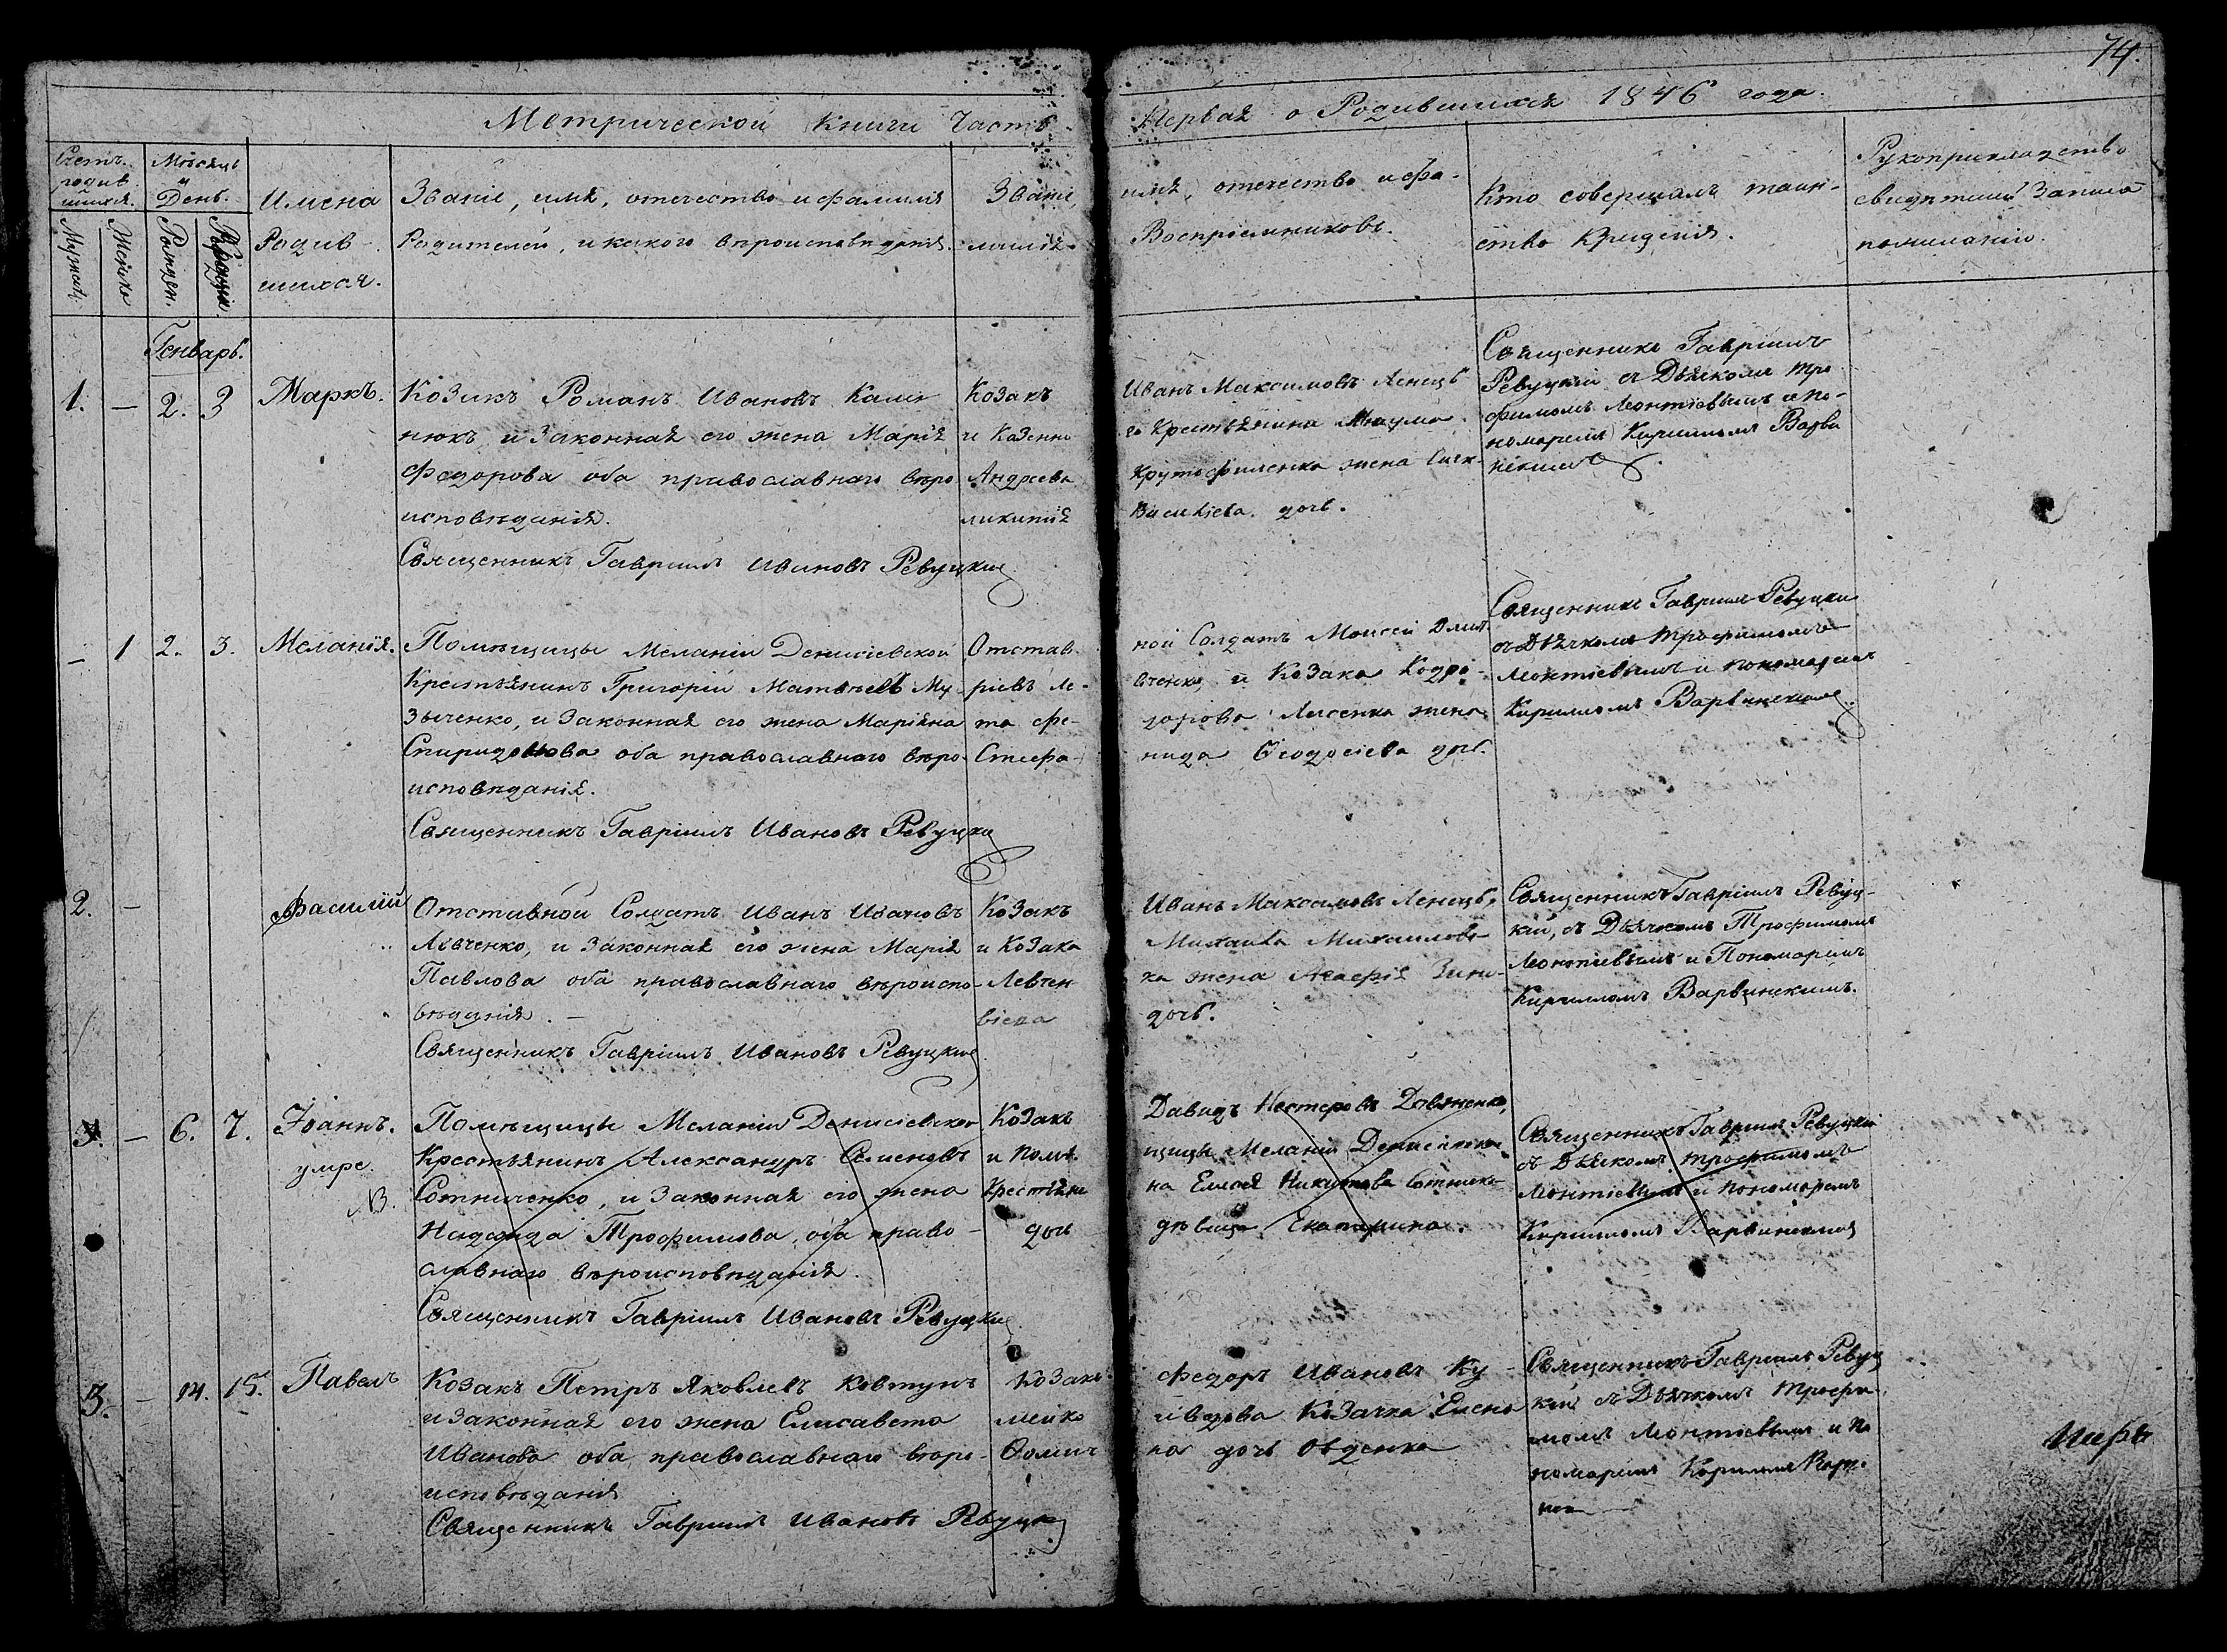 74.
Метрической Книги Часть Первая о Родившихся 1846 года.
Счетъ родив шихся.
Мужеск.
Женска
Мѣсяцъ и День.
Рожден.
Крещен.
Имена
Родив-
шихся.
Званіе, имя, отечество и фамилія
Родителей, и какого вѣроисповѣданія.
Званіе, имя, отечество и фа-
милія Воспріемниковъ.
Кто совершалъ таин-
ство Крещенія.
Рукоприкладство
свидѣтелей записа
по желанію.
Генварь.
1. – 2. 3 Маркъ.
Козакъ Романъ Ивановъ
нюкъ и Законная его жена Марія
Федорова оба православнаго вѣро
исповѣданія.
Священникъ Гавріилъ Ивановъ Ревуцкій
Козакъ Иванъ Максимовъ Ленецъ
и Казенна го Крестьянина Наума
Андреева жена
Васильева дочь.
Священникъ Гавріилъ
Ревуцкій съ Дьячкомъ Тро
фимомъ Леонтіевымъ и по-
номаремъ Кирилломъ Варви
нскимъ
– 1 2. 3. Меланія.
Помѣщицы Меланіи Денисіевской
Крестьянинъ Григорій Матвѣевъ Му-
зыченко, и Законная его жена Маріяна
Спиридонова оба православнаго вѣро-
исповѣданія.
Священникъ Гавріилъ Ивановъ Ревуцкій
Отстав- ной Солдатъ Моисей Дмит-
ріевъ Ле- вченко, и Козака Кодра-
та Фе- дорова Лысенка жена
Стефа- нида Ѳеодосіева дочь.
Священникъ Гавріилъ Ревуцкій
съ Дьячкомъ Трофимомъ
Леонтіевымъ и пономаремъ
Кирилломъ Варвинскимъ
2. – Василій
Отставной Солдатъ Иванъ Ивановъ
Левченко, и Законная его жена Марія
Павлова оба православнаго вѣроиспо-
вѣданія. –
Священникъ Гавріилъ Ивановъ Ревуцкій
Козакъ Иванъ Максимовъ Ленецъ,
и Козака Михаила Михаилова
Левчен ка жена Агафія Зино-
віева дочь.
Священникъ Гавріилъ Ревуц-
кій, съ Дьячкомъ Трофимомъ
Леонтіевымъ и Пономаремъ
Кирилломъ Варвинскимъ.
3. – 6. 7. Іоаннъ.
умре.
Помѣщицы Меланіи Денисіевской
Крестьянинъ Александръ Семеновъ
Сотниченко, и Законная его жена
Надежда Трофимова, оба право-
славнаго вѣроисповѣданія.
Священникъ Гавріилъ Ивановъ Ревуцкій
Козакъ Давидъ Нестеровъ Довженко,
и Помѣ щицы Меланіи Денисіевской
Крестьяни на Емелія Никитова Сотниче
дочь дѣвица Екатерина.
Священникъ Гавріилъ Ревуцкій
съ Дьячкомъ Трофимомъ
Леонтіевымъ и пономаремъ
Кирилломъ Варвинскимъ
3. – 14. 15. Павелъ
Козакъ Петръ Яковлевъ Ковтунъ
и Законная его жена Елисавета
Иванова оба православнаго вѣро-
исповѣданія
Священникъ Гавріилъ Ивановъ Ревуцкій
Козакъ Федоръ Ивановъ Ку-
менко и вдова Козачка Елена
Ѳомич на дочь
Священникъ Гавріилъ Ревуц
кій съ Дьячкомъ Трофи
момъ Леонтіевымъ и по
номаремъ Кирилломъ